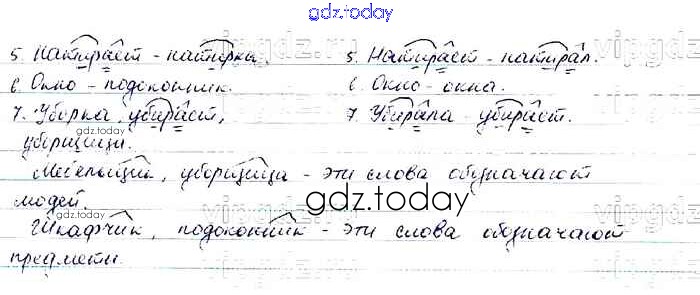 gdz.today
5. Натирает - натирка. 5. Натирает - натирал.
6. Окно - подоконник. 6. Окно - окна.
7. Уборка, убирает, 7. Убирала - убирает.
gdz.today
уборщица.
Мебельщик, уборщица - эти слова обозначают
людей.
gdz.today
Шкафчик, подоконник - эти слова обозначают
предметы.